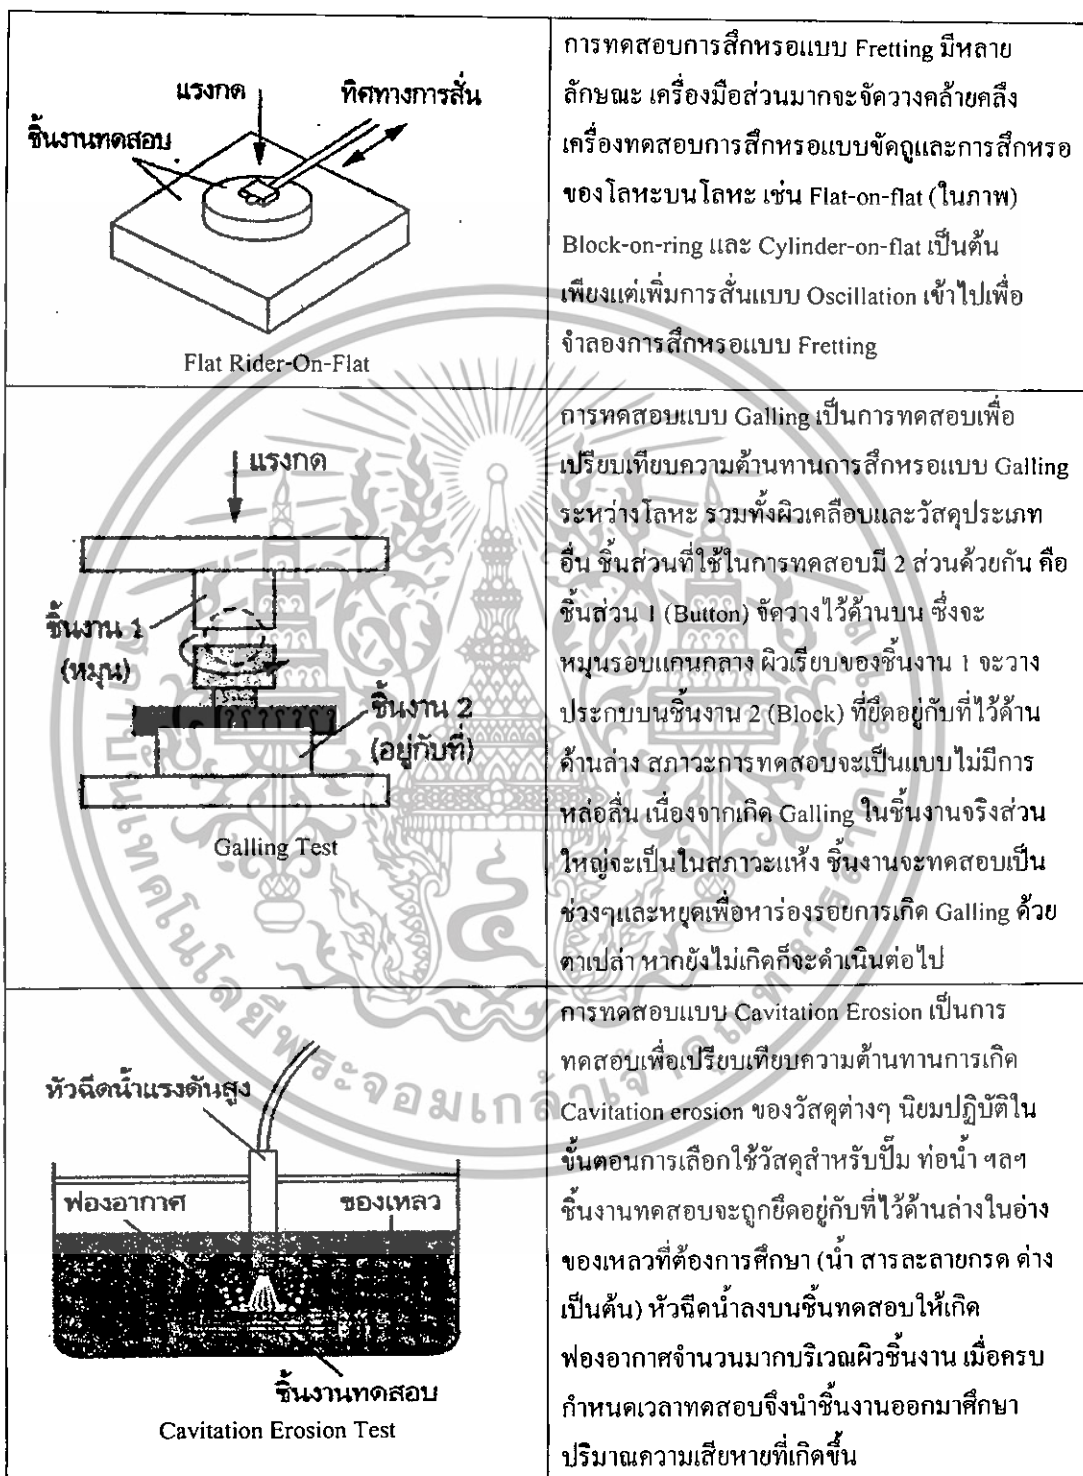 แรงกด
ทิศทางการสั่น
ชิ้นงานทดสอบ
Flat Rider-On-Flat
การทดสอบการสึกหรอแบบ Fretting มีหลาย
ลักษณะ เครื่องมือส่วนมากจะจัดวางคล้ายคลึง
เครื่องทดสอบการสึกหรอแบบขัดถูและการสึกหรอ
ของโลหะบนโลหะ เช่น Flat-on-flat (ในภาพ)
Block-on-ring และ Cylinder-on-flat เป็นต้น
เพียงแต่เพิ่มการสั่นแบบ Oscillation เข้าไปเพื่อ
จำลองการสึกหรอแบบ Fretting
แรงกด
ชิ้นงาน 1
(หมุน)
ชิ้นงาน 2
(อยู่กับที่)
Galling Test
การทดสอบแบบ Galling เป็นการทดสอบเพื่อ
เปรียบเทียบความต้านทานการสึกหรอแบบ Galling
ระหว่างโลหะ รวมทั้งผิวเคลือบและวัสดุประเภท
อื่น ชิ้นส่วนที่ใช้ในการทดสอบมี 2 ส่วนด้วยกัน คือ
ชิ้นส่วน 1 (Button) จัดวางไว้ด้านบน ซึ่งจะ
หมุนรอบแกนกลาง ผิวเรียบของชิ้นงาน 1 จะวาง
ประกบบนชิ้นงาน 2 (Block) ที่ยึดอยู่กับที่ไว้ด้าน
ด้านล่าง สภาวะการทดสอบจะเป็นแบบไม่มีการ
หล่อลื่น เนื่องจากเกิด Galling ในชิ้นงานจริงส่วน
ใหญ่จะเป็นในสภาวะแห้ง ชิ้นงานจะทดสอบเป็น
ช่วงๆและหยุดเพื่อหาร่องรอยการเกิด Galling ด้วย
ตาเปล่า หากยังไม่เกิดก็จะดำเนินต่อไป
หัวฉีดน้ำแรงดันสูง
ฟองอากาศ
ของเหลว
ชิ้นงานทดสอบ
Cavitation Erosion Test
การทดสอบแบบ Cavitation Erosion เป็นการ
ทดสอบเพื่อเปรียบเทียบความต้านทานการเกิด
Cavitation erosion ของวัสดุต่างๆ นิยมปฏิบัติใน
ขั้นตอนการเลือกใช้วัสดุสำหรับปั๊ม ท่อน้ำ ฯลฯ
ชิ้นงานทดสอบจะถูกยึดอยู่กับที่ไว้ด้านล่างในอ่าง
ของเหลวที่ต้องการศึกษา (น้ำ สารละลายกรด ด่าง
เป็นต้น) หัวฉีดน้ำลงบนชิ้นทดสอบให้เกิด
ฟองอากาศจำนวนมากบริเวณผิวชิ้นงาน เมื่อครบ
กำหนดเวลาทดสอบจึงนำชิ้นงานออกมาศึกษา
ปริมาณความเสียหายที่เกิดขึ้น